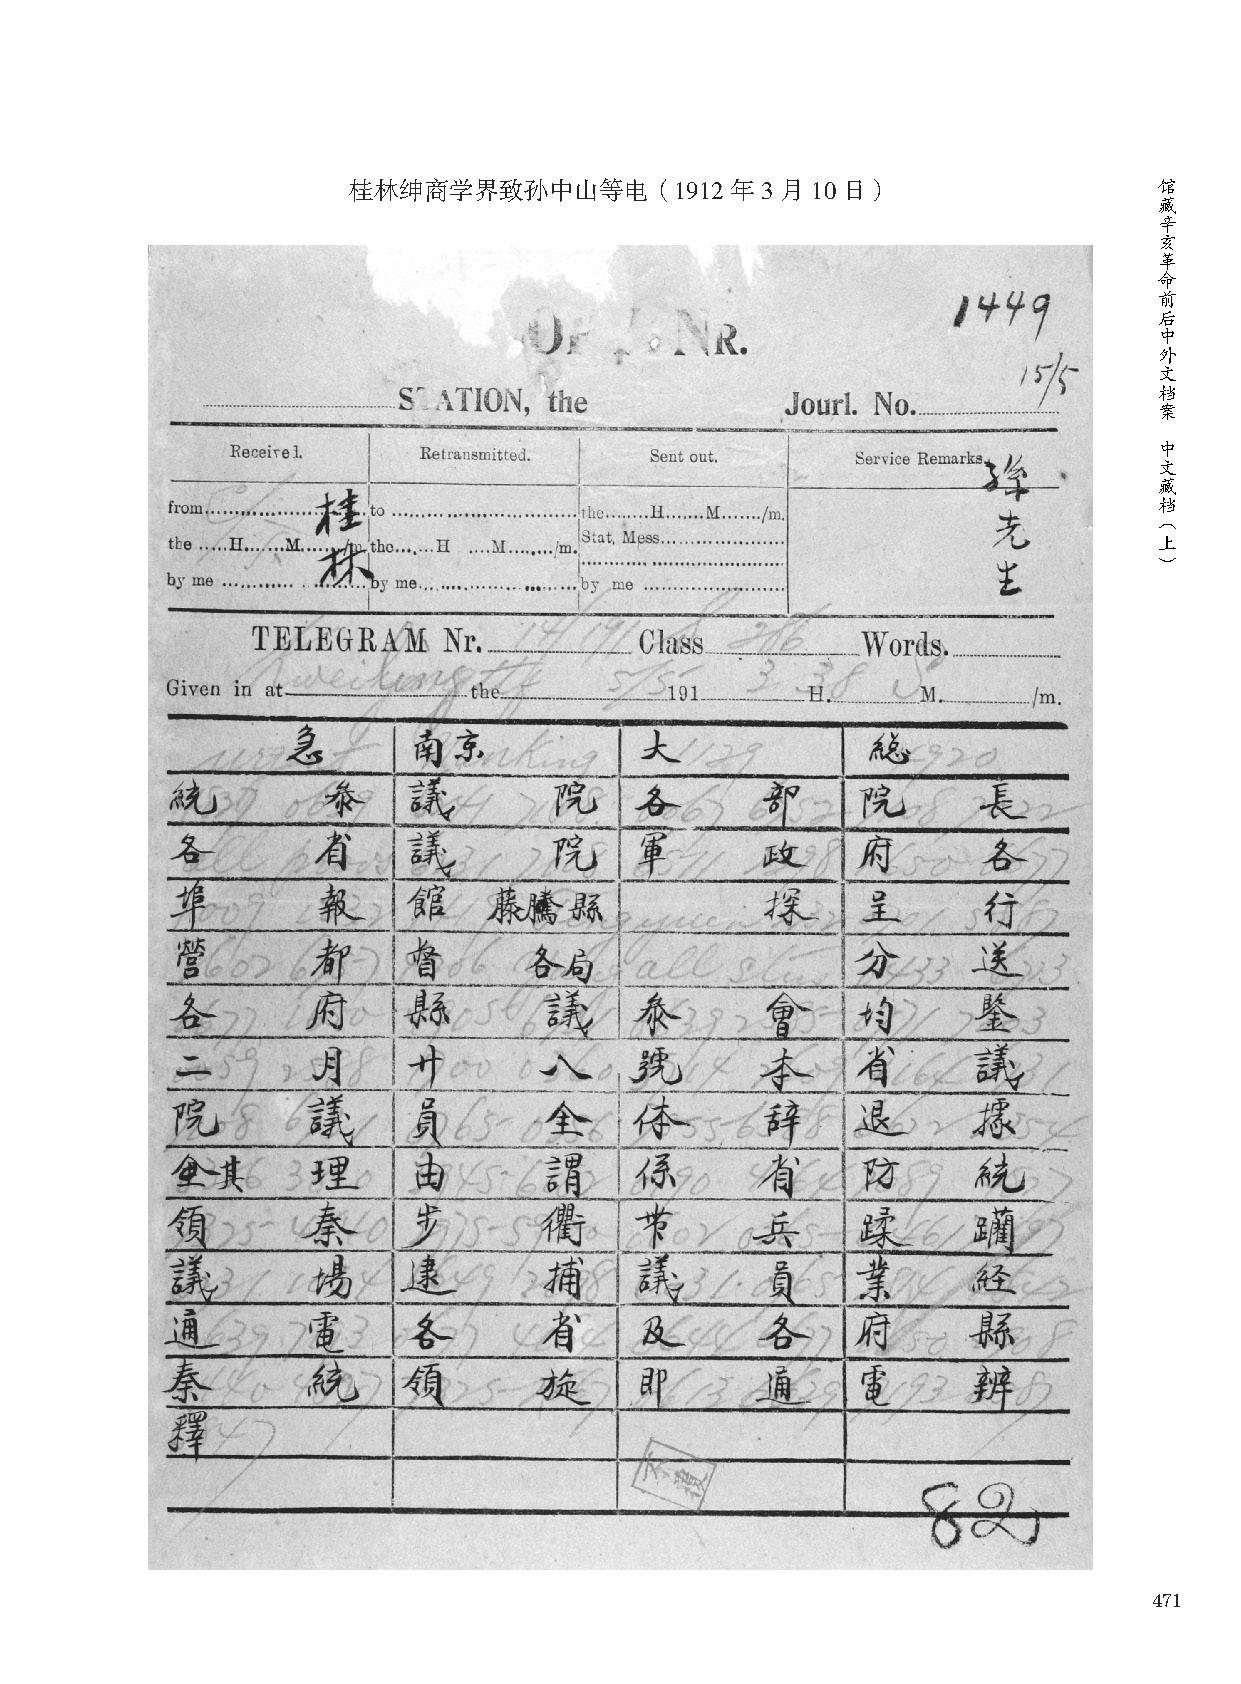 桂林绅商学界致孙中山等电（1912 年 3 月 10 日）
馆藏辛亥革命前后中外文档案 中文藏档（上）
1449
NR.
15/5
STATION, the
Jourl. No.
Received. Retransmitted. Sent out. Service Remarks.
孫先生
from 桂林 to the H M /m.
the H M /m the H M /m. Stat. Mess.
by me by me by me
TELEGRAM Nr. Class Words.
Given in at the 191 H. M. /m.
急 南京 大 總
統 參 議 院 各 部 院 長
各 省 議 院 軍 政 府 各
埠 報 館 藤騰縣 探 呈 行
營 都 督 各局 分 送
各 府 縣 議 參 會 均 鑒
二 月 廿 八 號 本 省 議
院 議 員 全 体 辞 退 據
其 理 由 謂 係 省 防 統
領 秦 步 衢 带 兵 蹂 躪
議 場 逮 捕 議 員 業 経
通 電 各 省 及 各 府 縣
秦 統 領 旋 即 通 電 辨
釋
82
471